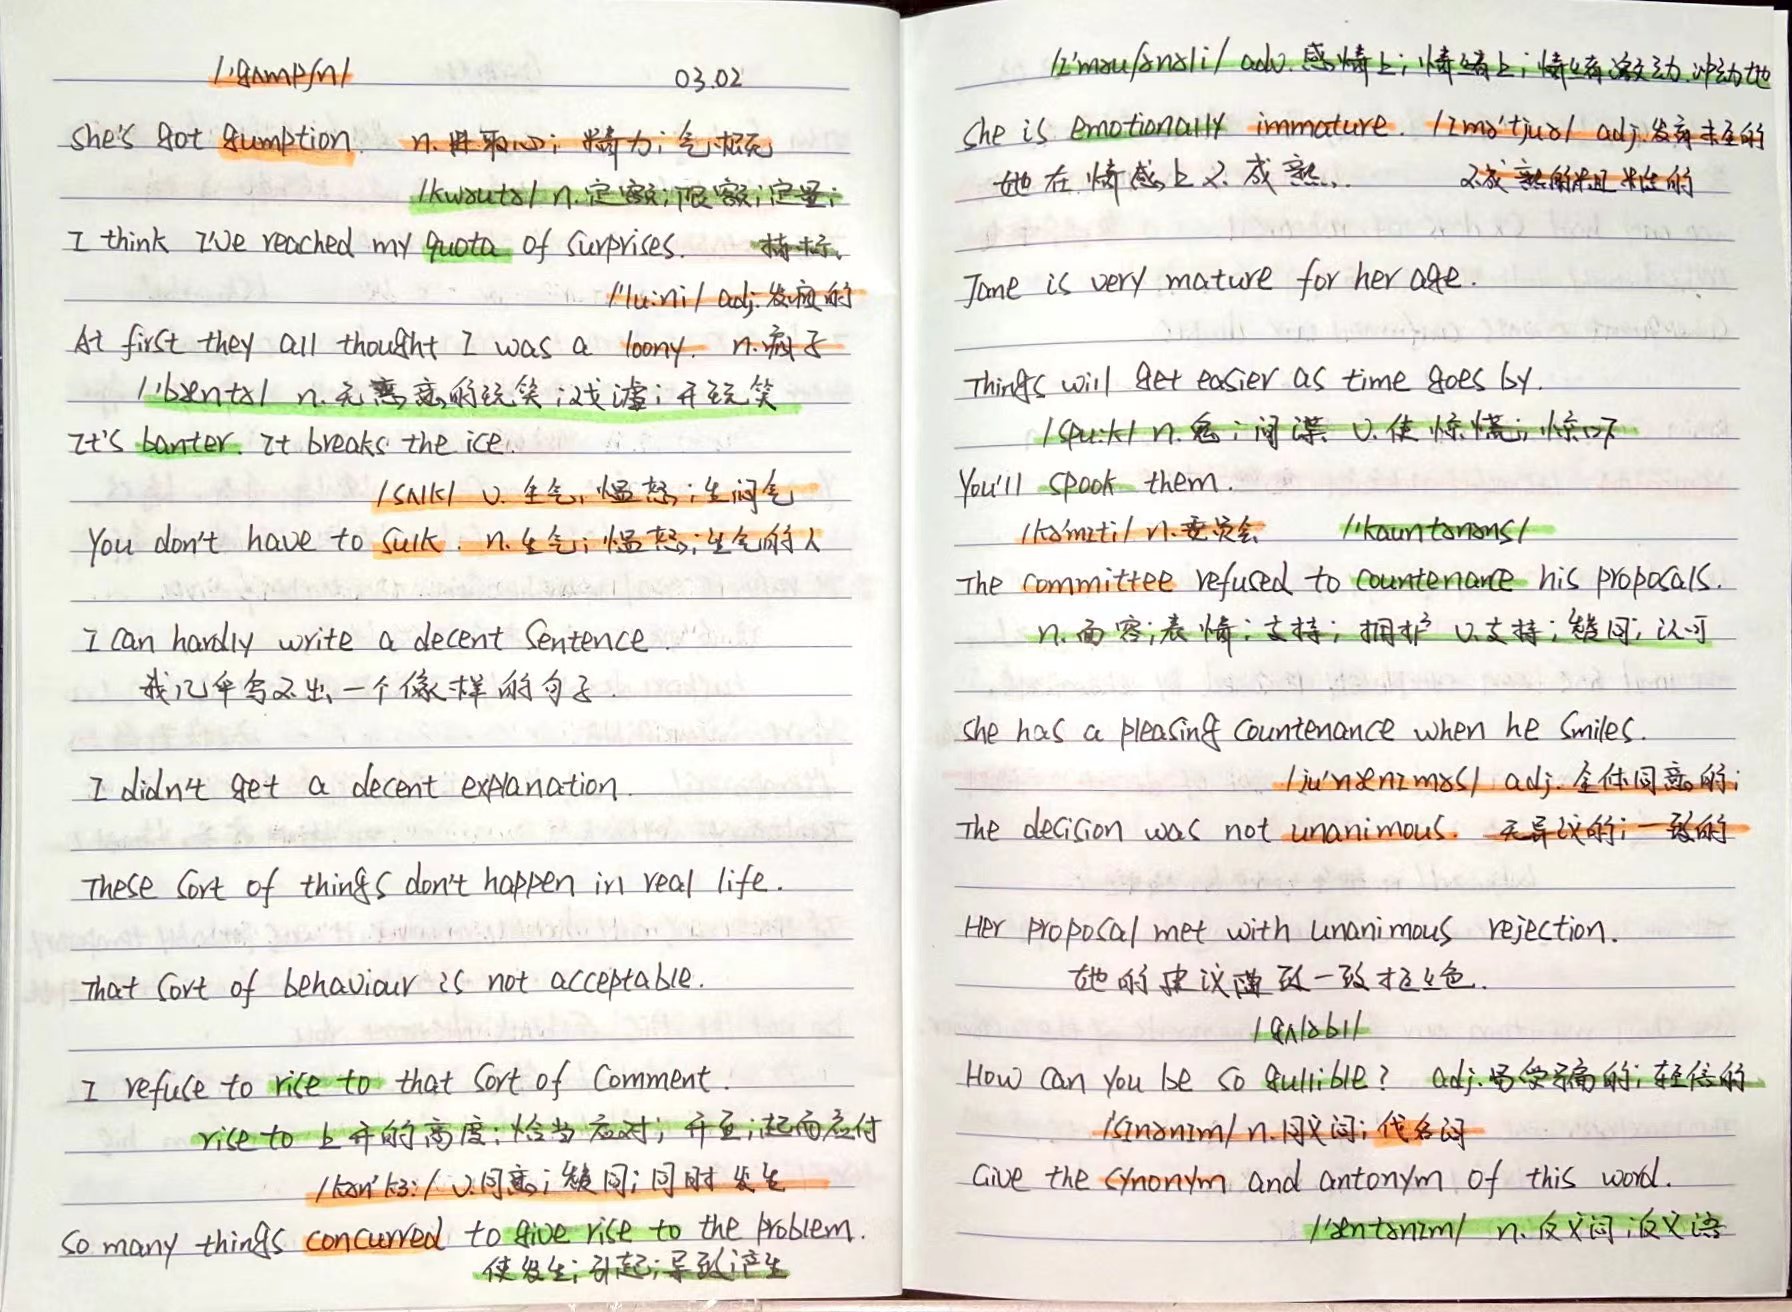 /ˈɡʌmpʃn/ 03.02
She's got gumption. n. 进取心; 精力; 气概
/kwəutə/ n. 定额; 限额; 定量;
I think I've reached my quota of surprises. 指标.
/ˈlu:ni/ adj. 发疯的
At first they all thought I was a loony. n. 疯子
/ˈbæntə/ n. 无恶意的玩笑; 戏谑; 开玩笑
It's banter. It breaks the ice.
/sʌlk/ v. 生气, 愠怒; 生闷气
You don't have to sulk. n. 生气; 愠怒; 生气的人
I can hardly write a decent sentence.
我几乎写不出一个像样的句子.
I didn't get a decent explanation.
These sort of things don't happen in real life.
That sort of behaviour is not acceptable.
I refuse to rise to that sort of comment.
rise to 上升的高度; 恰当应对; 升至; 起而应付
/kən'kɜ:/ v. 同意; 赞同; 同时发生
So many things concurred to give rise to the problem.
使发生; 引起; 导致; 产生
/ɪ'məuʃənəli/ adv. 感情上; 情绪上; 情绪激动. 冲动地
She is emotionally immature. /ɪmə'tjuə/ adj. 发育未全的
她在情感上不成熟. 不成熟的 粗糙的
Jane is very mature for her age.
Things will get easier as time goes by.
/spu:k/ n. 鬼; 间谍 v. 使惊慌; 惊吓
You'll spook them.
/kə'mɪti/ n. 委员会 /'kauntənəns/
The committee refused to countenance his proposals.
n. 面容; 表情; 支持; 拥护 v. 支持; 赞同; 认可
She has a pleasing countenance when he smiles.
/ju'nænɪməs/ adj. 全体同意的;
The decision was not unanimous. 无异议的; 一致的
Her proposal met with unanimous rejection.
她的建议遭致一致拒绝.
/ɡʌləbl/
How can you be so gullible? adj. 易受骗的; 轻信的
/'sɪnənɪm/ n. 同义词; 代名词
Give the synonym and antonym of this word.
/'æntənɪm/ n. 反义词; 反义语